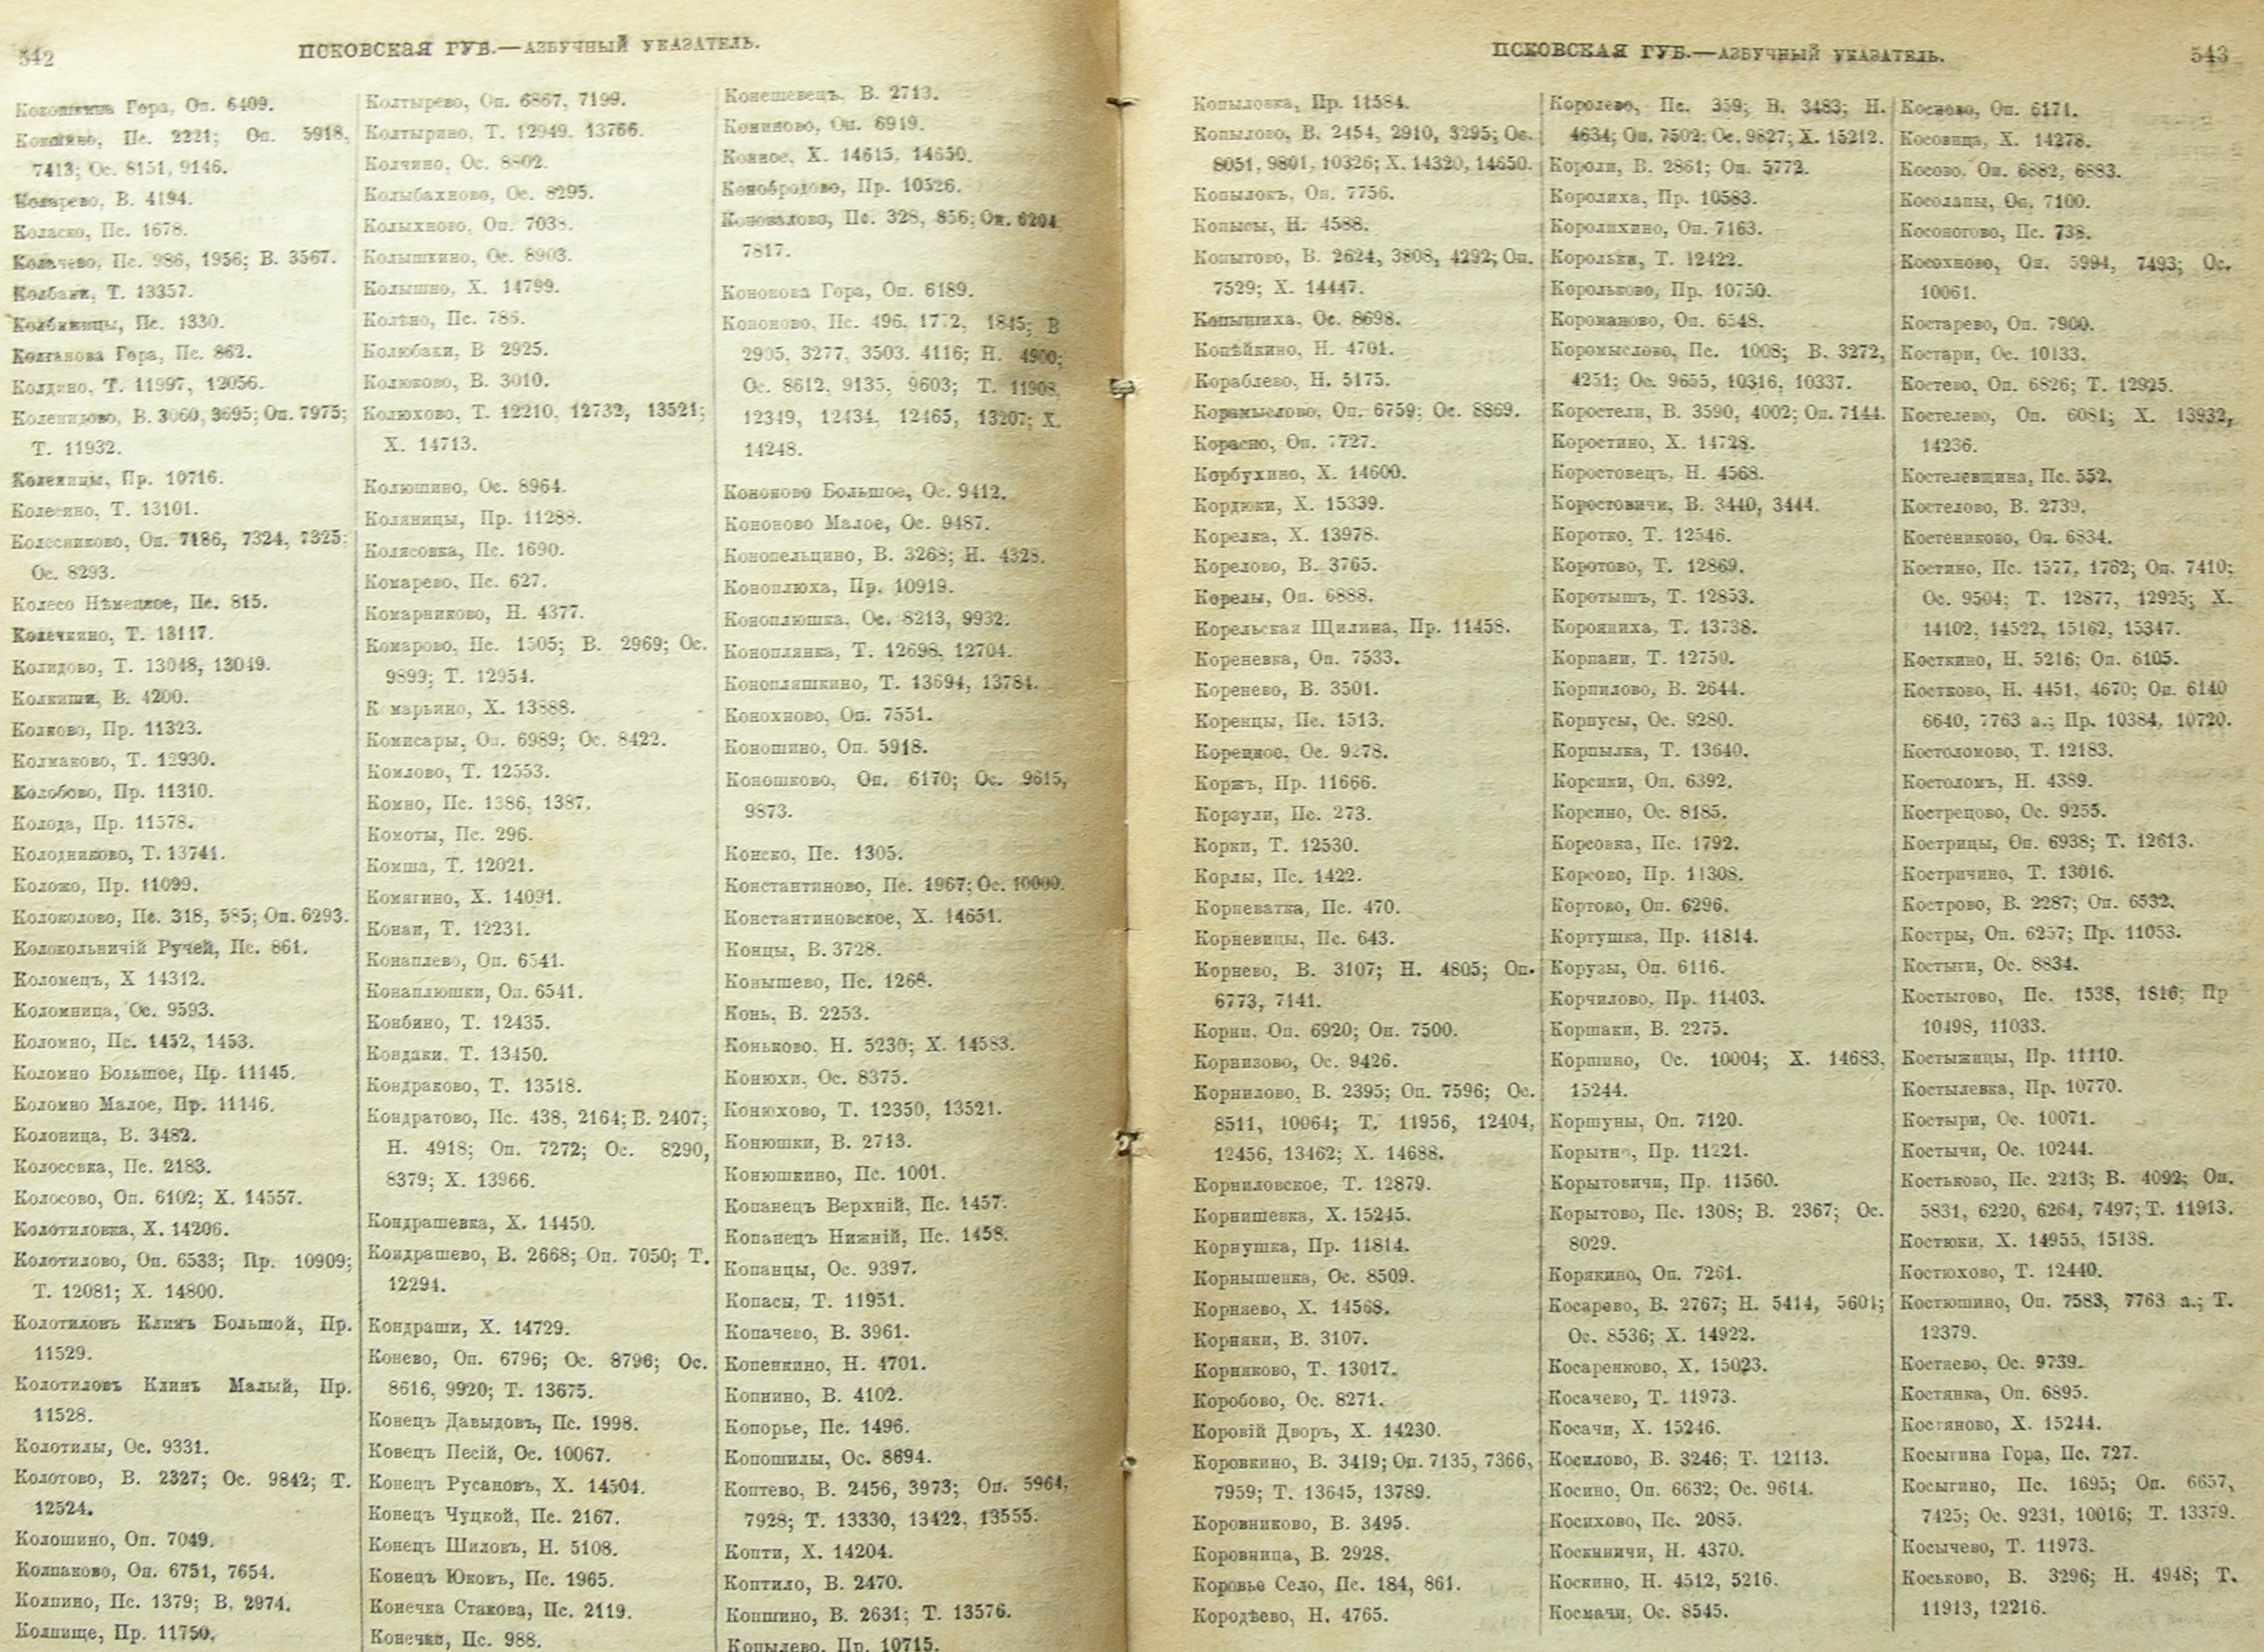 342
ПСКОВСКАЯ ГУБ.—АЗБУЧНЫЙ УКАЗАТЕЛЬ.
Кокошкина Гора, Оп. 6409.
Кокшино, Пс. 2221; Оп. 5918,
7413; Ос. 8151, 9146.
Коларево, В. 4194.
Коласко, Пс. 1678.
Колачево, Пс. 986, 1956; В. 3567.
Колбаки, Т. 13357.
Колбижицы, Пс. 1330.
Колганова Гора, Пс. 862.
Колдино, Т. 11997, 12056.
Коленидово, В. 3060, 3695; Оп. 7975;
Т. 11932.
Коленицы, Пр. 10716.
Колесино, Т. 13101.
Колесниково, Оп. 7186, 7324, 7325;
Ос. 8293.
Колесо Нѣмецкое, Пс. 815.
Колечкино, Т. 13117.
Колидово, Т. 13048, 13049.
Колкиши, В. 4200.
Колково, Пр. 11323.
Колмаково, Т. 12930.
Колобово, Пр. 11310.
Колода, Пр. 11578.
Колодниково, Т. 13741.
Коложо, Пр. 11099.
Колоколово, Пс. 318, 585; Оп. 6293.
Колокольничій Ручей, Пс. 861.
Коломецъ, Х 14312.
Коломница, Ос. 9593.
Коломно, Пс. 1452, 1453.
Коломно Большое, Пр. 11145.
Коломно Малое, Пр. 11146.
Колоница, В. 3482.
Колосовка, Пс. 2183.
Колосово, Оп. 6102; Х. 14557.
Колотиловка, Х. 14206.
Колотилово, Оп. 6533; Пр. 10909;
Т. 12081; Х. 14800.
Колотиловъ Клинъ Большой, Пр.
11529.
Колотиловъ Клинъ Малый, Пр.
11528.
Колотилы, Ос. 9331.
Колотово, В. 2327; Ос. 9842; Т.
12524.
Колошино, Оп. 7049.
Колпаково, Оп. 6751, 7654.
Колпино, Пс. 1379; В. 2974.
Колпище, Пр. 11750.
Колтырево, Оп. 6867, 7199.
Колтырино, Т. 12949. 13766.
Колчино, Ос. 8802.
Колыбахново, Ос. 8295.
Колыхново, Оп. 7038.
Колышкино, Ос. 8903.
Колышно, Х. 14799.
Колѣно, Пс. 785.
Колюбаки, В 2925.
Колюково, В. 3010.
Колюхово, Т. 12210, 12732, 13521;
Х. 14713.
Колюшино, Ос. 8964.
Коляницы, Пр. 11288.
Колясовка, Пс. 1690.
Комарево, Пс. 627.
Комарниково, Н. 4377.
Комарово, Пс. 1505; В. 2969; Ос.
9899; Т. 12954.
К марьино, Х. 13888.
Комисары, Оп. 6989; Ос. 8422.
Комлово, Т. 12553.
Комно, Пс. 1386, 1387.
Комоты, Пс. 296.
Комша, Т. 12021.
Комягино, Х. 14091.
Конаи, Т. 12231.
Конаплево, Оп. 6541.
Конаплюшки, Оп. 6541.
Конбино, Т. 12435.
Кондаки, Т. 13450.
Кондраково, Т. 13518.
Кондратово, Пс. 438, 2164; В. 2407;
Н. 4918; Оп. 7272; Ос. 8290,
8379; Х. 13966.
Кондрашевка, Х. 14450.
Кондрашево, В. 2668; Оп. 7050; Т.
12294.
Кондраши, Х. 14729.
Конево, Оп. 6796; Ос. 8796; Ос.
8616, 9920; Т. 13675.
Конецъ Давыдовъ, Пс. 1998.
Конецъ Песій, Ос. 10067.
Конецъ Русановъ, Х. 14504.
Конецъ Чуцкой, Пс. 2167.
Конецъ Шиловъ, Н. 5108.
Конецъ Юковъ, Пс. 1965.
Конечка Стакова, Пс. 2119.
Конечки, Пс. 988.
Конешевецъ. В. 2713.
Кониново, Оп. 6919.
Конное, Х. 14615, 14650.
Конобродово, Пр. 10526.
Коновалово, Пс. 328, 856; Оп. 6204
7817.
Кононова Гора, Оп. 6189.
Кононово, Пс. 496, 1772, 1845; В
2905. 3277, 3503. 4116; Н. 4900;
Ос. 8612, 9135, 9603; Т. 11908,
12349, 12434, 12465, 13207; Х.
14248.
Кононово Большое, Ос. 9412.
Кононово Малое, Ос. 9487.
Конопельцино, В. 3268; Н. 4328.
Коноплюха, Пр. 10919.
Коноплюшка, Ос. 8213, 9932.
Коноплянка, Т. 12698, 12704.
Конопляшкино, Т. 13694, 13784.
Конохново, Оп. 7551.
Коношино, Оп. 5918.
Коношково, Оп. 6170; Ос. 9615,
9873.
Конско, Пс. 1305.
Константиново, Пс. 1967; Ос. 10000.
Константиновское, Х. 14651.
Концы, В. 3728.
Конышево, Пс. 1268.
Конь, В. 2253.
Коньково, Н. 5230; Х. 14583.
Конюхи, Ос. 8375.
Конюхово, Т. 12350, 13521.
Конюшки, В. 2713.
Конюшкино, Пс. 1001.
Копанецъ Верхній, Пс. 1457.
Копанецъ Нижній, Пс. 1458.
Копанцы, Ос. 9397.
Копасы, Т. 11951.
Копачево, В. 3961.
Копенкино, Н. 4701.
Копнино, В. 4102.
Копорье, Пс. 1496.
Копошилы, Ос. 8694.
Коптево, В. 2456, 3973; Оп. 5964,
7928; Т. 13330, 13422, 13555.
Копти, Х. 14204.
Коптило, В. 2470.
Копшино, В. 2631; Т. 13576.
Копылево, Пр. 10715.
ПСКОВСКАЯ ГУБ.—АЗБУЧНЫЙ УКАЗАТЕЛЬ.
543
Копыловка, Пр. 11584.
Копылово, В. 2454, 2910, 3295; Ос.
8051, 9801, 10326; Х. 14320, 14650.
Копылокъ, Оп. 7756.
Копысы, Н. 4588.
Копытово, В. 2624, 3808, 4292; Оп.
7529; Х. 14447.
Копышиха, Ос. 8698.
Копѣйкино, Н. 4701.
Кораблево, Н. 5175.
Корамыслово, Оп. 6759; Ос. 8869.
Корасно, Оп. 7727.
Корбухино, Х. 14600.
Кордюки, Х. 15339.
Корелка, Х. 13978.
Корелово, В. 3765.
Корелы, Оп. 6888.
Корельская Щилина, Пр. 11458.
Кореневка, Оп. 7533.
Коренево, В. 3501.
Коренцы, Пс. 1513.
Корецкое, Ос. 9278.
Коржъ, Пр. 11666.
Корзули, Пс. 273.
Корки, Т. 12530.
Корлы, Пс. 1422.
Корневатка, Пс. 470.
Корневицы, Пс. 643.
Корнево, В. 3107; Н. 4805; Оп.
6773, 7141.
Корни, Оп. 6920; Оп. 7500.
Корнизово, Ос. 9426.
Корнилово, В. 2395; Оп. 7596; Ос.
8511, 10064; Т. 11956, 12404,
12456, 13462; Х. 14688.
Корниловское, Т. 12879.
Корнишевка, Х. 15245.
Корнушка, Пр. 11814.
Корнышенка, Ос. 8509.
Корняево, Х. 14568.
Корняки, В. 3107.
Корняково, Т. 13017.
Коробово, Ос. 8271.
Коровій Дворъ, Х. 14230.
Коровкино, В. 3419; Оп. 7135, 7366,
7959; Т. 13645, 13789.
Коровниково, В. 3495.
Коровница, В. 2928.
Коровье Село, Пс. 184, 861.
Кородѣево, Н. 4765.
Королево, Пс. 359; В. 3483; Н.
4634; Оп. 7502; Ос. 9827; Х. 15212.
Короли, В. 2861; Оп. 5772.
Королиха, Пр. 10583.
Королихино, Оп. 7163.
Корольки, Т. 12422.
Корольково, Пр. 10750.
Короманово, Оп. 6548.
Коромыслово, Пс. 1008; В. 3272,
4251; Ос. 9655, 10316, 10337.
Коростели, В. 3590, 4002; Оп. 7144.
Коростино, Х. 14728.
Коростовецъ, Н. 4568.
Коростовичи, В. 3440, 3444.
Коротко, Т. 12546.
Коротово, Т. 12869.
Коротышъ, Т. 12853.
Корояниха, Т. 13738.
Корпани, Т. 12750.
Корпилово, В. 2644.
Корпусы, Ос. 9280.
Корпылка, Т. 13640.
Корсики, Оп. 6392.
Корсино, Ос. 8185.
Корсовка, Пс. 1792.
Корсово, Пр. 11308.
Кортово, Оп. 6296.
Кортушка, Пр. 11814.
Корузы, Оп. 6116.
Корчилово, Пр. 11403.
Коршаки, В. 2275.
Коршино, Ос. 10004; Х. 14683,
15244.
Коршуны, Оп. 7120.
Корытно, Пр. 11221.
Корытовичи, Пр. 11560.
Корытово, Пс. 1308; В. 2367; Ос.
8029.
Корякино, Оп. 7261.
Косарево, В. 2767; Н. 5414, 5601;
Ос. 8536; Х. 14922.
Косаренково, Х. 15023.
Косачево, Т. 11973.
Косачи, Х. 15246.
Косилово, В. 3246; Т. 12113.
Косино, Оп. 6632; Ос. 9614.
Косихово, Пс. 2085.
Коскиничи, Н. 4370.
Коскино, Н. 4512, 5216.
Космачи, Ос. 8545.
Коснево, Оп. 6171.
Косовица, Х. 14278.
Косово, Оп. 6882, 6883.
Косолапы, Оп. 7100.
Косоногово, Пс. 738.
Косохново, Оп. 5994, 7493; Ос.
10061.
Костарево, Оп. 7900.
Костари, Ос. 10133.
Костево, Оп. 6826; Т. 12925.
Костелево, Оп. 6081; Х. 13932,
14236.
Костелевщина, Пс. 552.
Костелово, В. 2739.
Костениково, Оп. 6834.
Костино, Пс. 1577, 1762; Оп. 7410;
Ос. 9504; Т. 12877, 12925; Х.
14102, 14522, 15162, 15347.
Косткино, Н. 5216; Оп. 6105.
Костково, Н. 4451, 4670; Оп. 6140
6640, 7763 а.; Пр. 10384, 10720.
Костоломово, Т. 12183.
Костоломъ, Н. 4389.
Кострецово, Ос. 9255.
Кострицы, Оп. 6938; Т. 12613.
Костричино, Т. 13016.
Кострово, В. 2287; Оп. 6532.
Костры, Оп. 6257; Пр. 11053.
Костыги, Ос. 8834.
Костыгово, Пс. 1538, 1816; Пр
10498, 11033.
Костыжицы, Пр. 11110.
Костылевка, Пр. 10770.
Костыри, Ос. 10071.
Костычи, Ос. 10244.
Костьково, Пс. 2213; В. 4092; Оп.
5831, 6220, 6264, 7497; Т. 11913.
Костюки, Х. 14955, 15138.
Костюхово, Т. 12440.
Костюшино, Оп. 7583, 7763 а.; Т.
12379.
Костяево, Ос. 9739.
Костянка, Оп. 6895.
Костяново, Х. 15244.
Косыгина Гора, Пс. 727.
Косыгино, Пс. 1695; Оп. 6657,
7425; Ос. 9231, 10016; Т. 13379.
Косычево, Т. 11973.
Коськово, В. 3296; Н. 4948; Т.
11913, 12216.